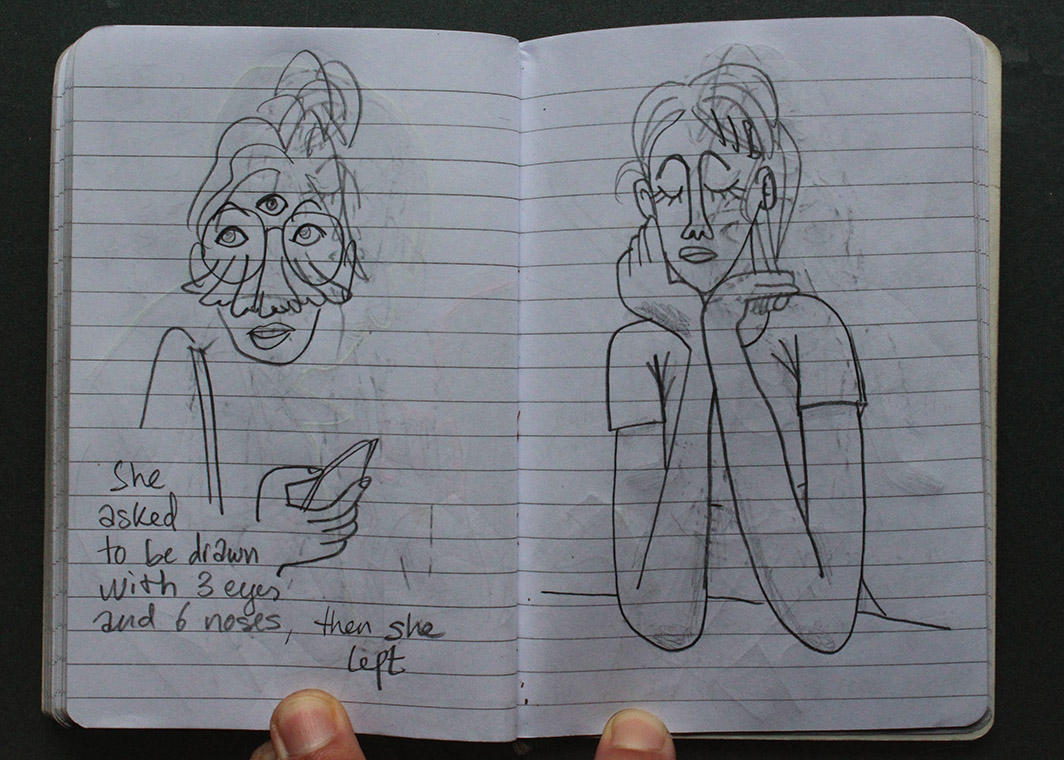 She
asked
to be drawn
with 3 eyes
and 6 noses, then she
left